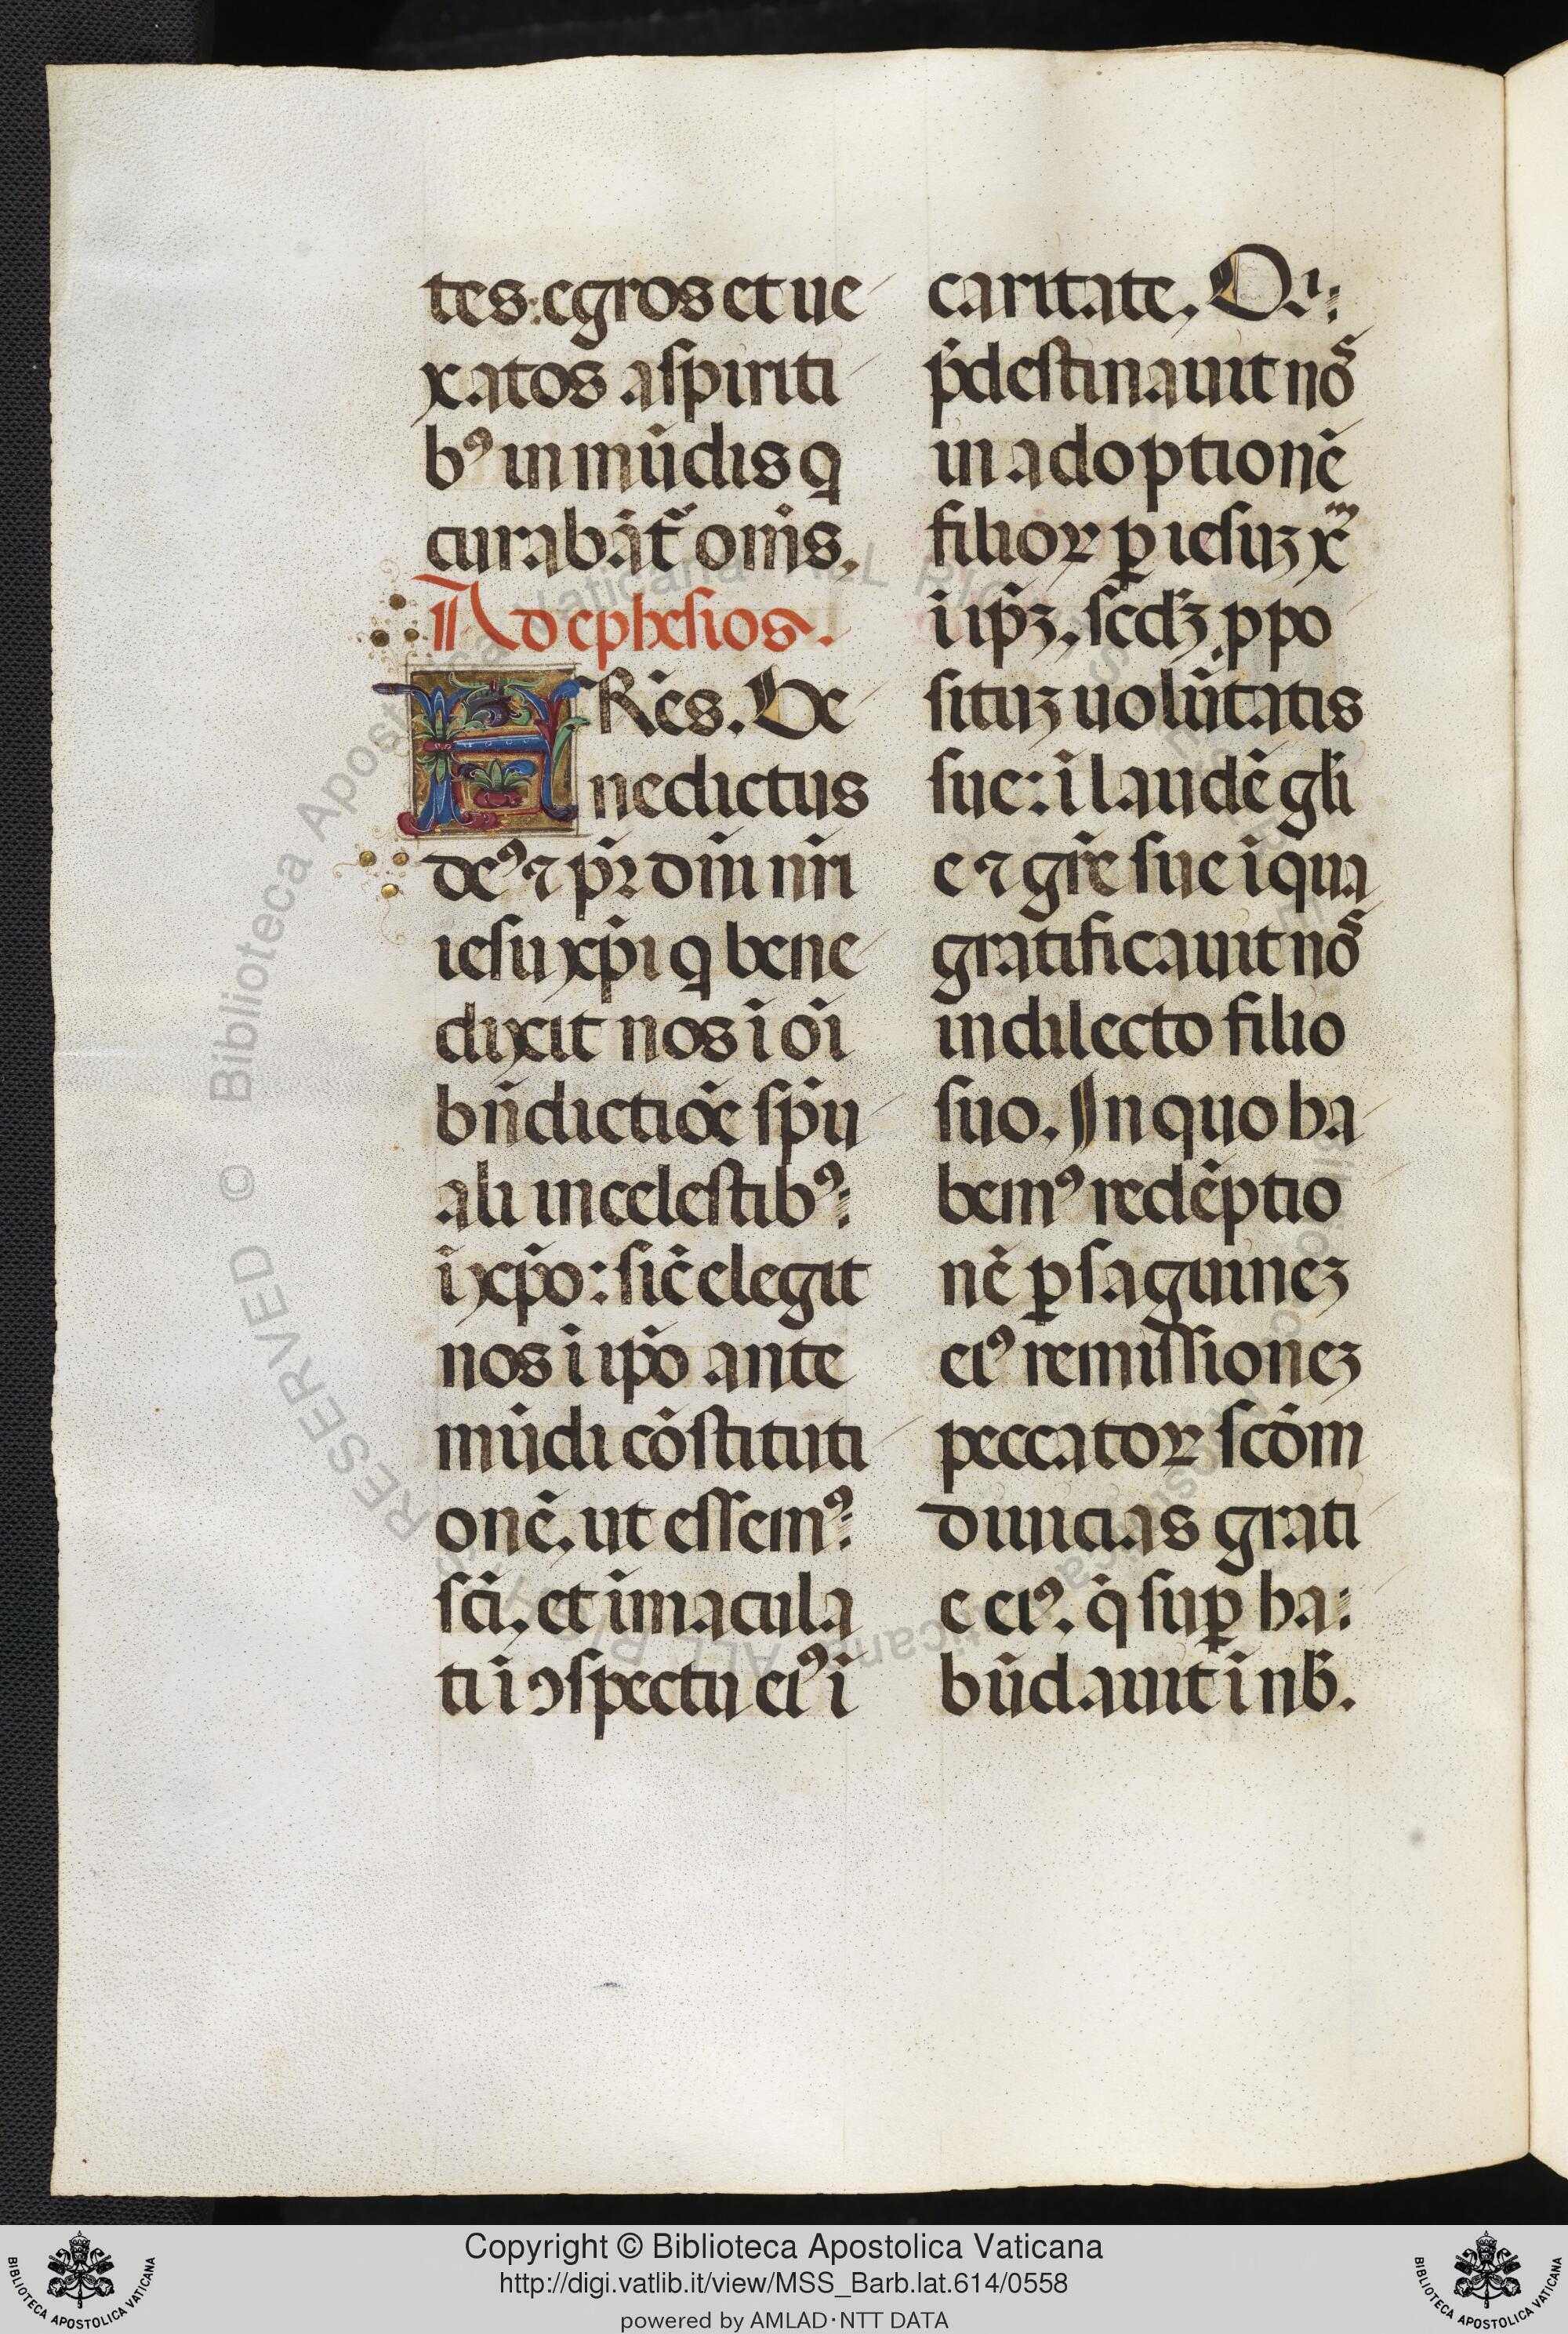 tes: egros et ue
xatos a spiriti
bꝰ inmūdis q
curabāt᷑ om̄s.
Ad ephesios.
FRēs. Be
nedictus
deꝰ ⁊ pr̄ dn̄i nr̄i
iesu xp̄i q bene
dixit nos ī oī
bn̄dictiōe sp̄u
ali in celestibꝰ:
ī xp̄o: sic̄ elegit
nos ī ip̄o ante
mūdi cōstituti
onē. ut essemꝰ:
sc̄i. et īmacula
ti ī ꝯspectu eiꝰ ī
caritate. Qi:
p̄destinauit nos
in adoptionē
filioꝝ ꝑ iesuꝫ xm
ī ip̄ꝫ. scd̄ꝫ ꝓpo
situꝫ uolūtatis
sue: ī laudē gl̄i
e ⁊ gr̄e sue ī qua
gratificauit nos
in dilecto filio
suo. In quo ha
bemꝰ redēptio
nē ꝑ saguineꝫ
eiꝰ remissioneꝫ
peccatoꝝ scd̄m
diuicias grati
e eiꝰ. q̄ suꝑ ha:
būdauit ī nb̄.
© Biblioteca Apostolica Vaticana ALL RIGHTS RESERVED
Copyright © Biblioteca Apostolica Vaticana
http://digi.vatlib.it/view/MSS_Barb.lat.614/0558
powered by AMLAD·NTT DATA
BIBLIOTECA APOSTOLICA VATICANA
BIBLIOTECA APOSTOLICA VATICANA